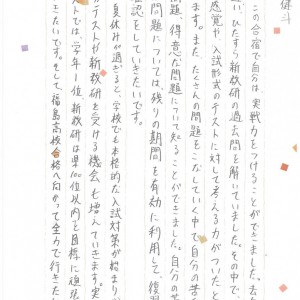 健斗
この合宿で自分は、実戦力をつけることができました。去
い、ひたすら新教研の過去問を解いていました。その中で
感覚や、入試形式のテストに対して考える力がついたと
ます。また、たくさんの問題をこなしていく中で自分の苦
題、得意だ問題について知ることができました。自分の苦
問題については、残りの期間を有効に利用して、復習
認をしていきたいです。
夏休みが過ぎると、学校でも本格的な入試対策が始まり
テストや新教研を受ける機会も増えていきます。実
トでは、学年1位、新教研は県100位以内を目標に頑張
きたいです。そして、福島高校合格へ向かって全力で行きた